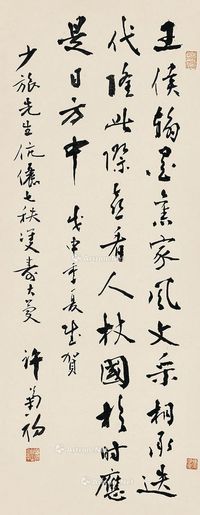 王侯翰墨旧家风文采相承迭
代隆此际欣看人杖国于时应
是日方中 戊申季夏敬贺
少旅先生伉俪七秩双寿大庆
许菊初